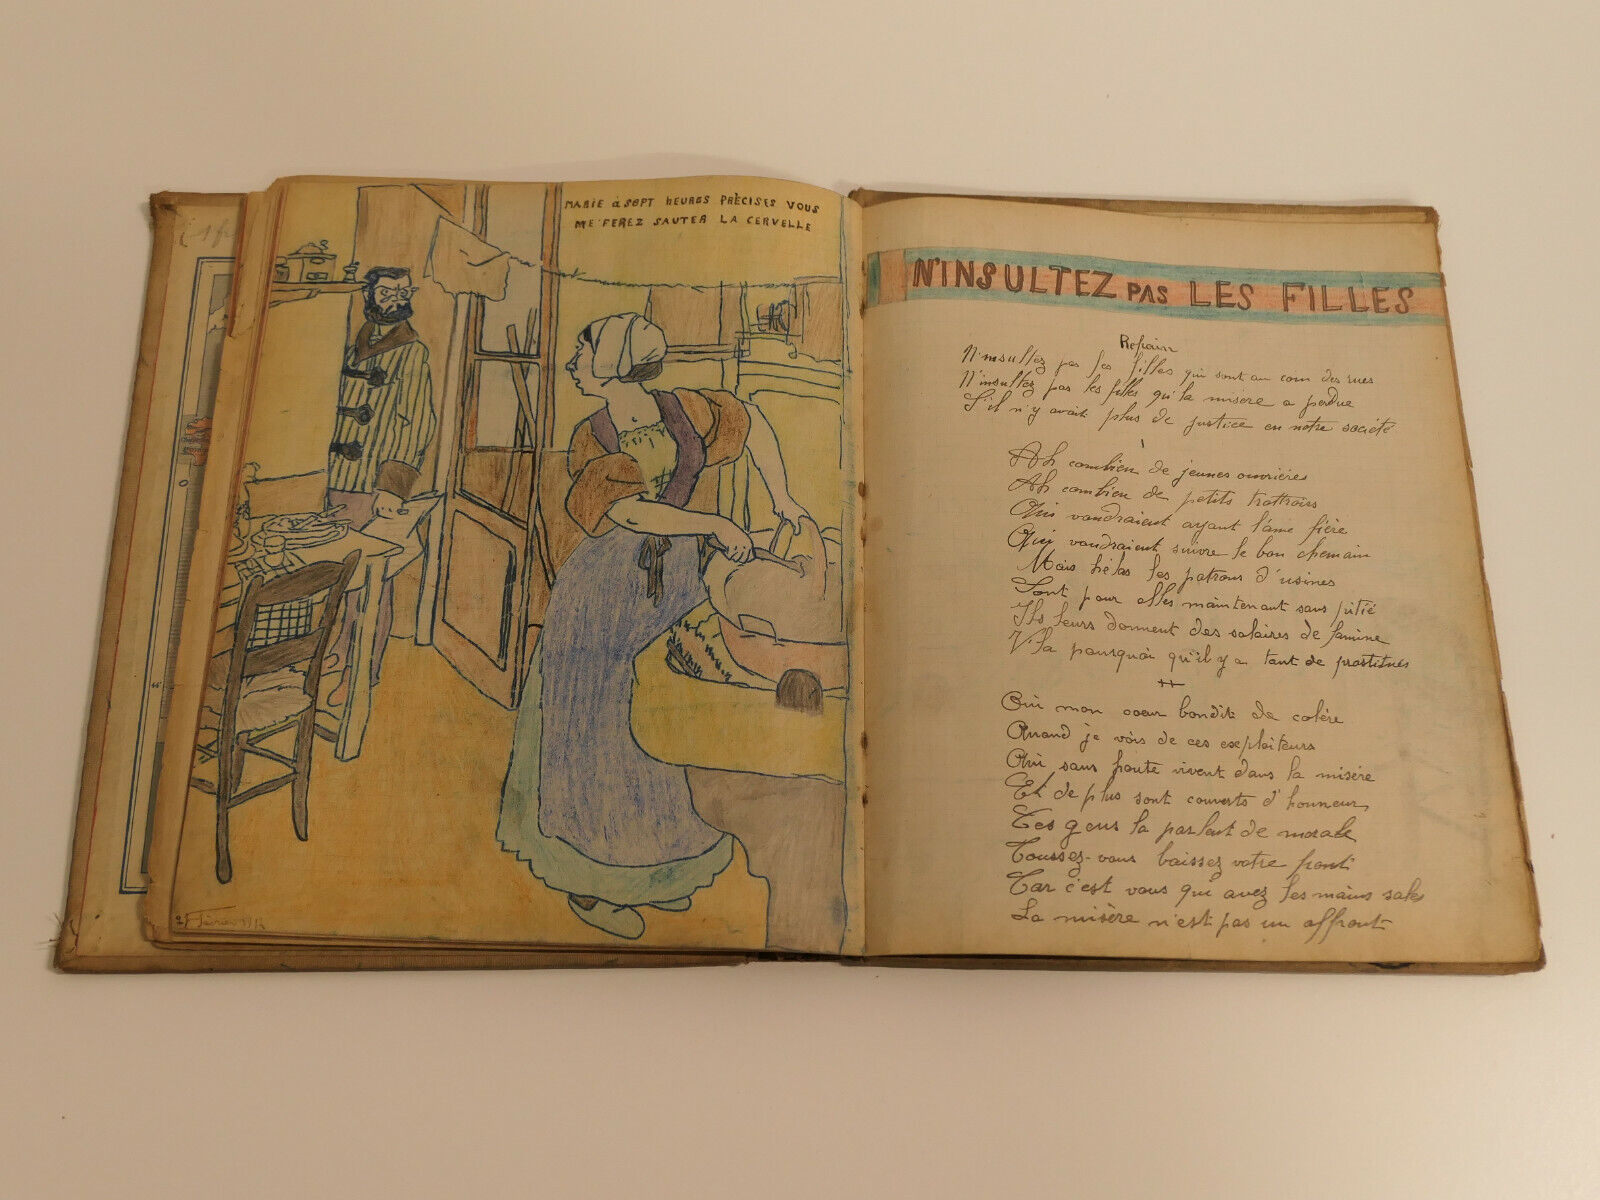 MARIE à SEPT HEURES PRÈCISES VOUS
ME FEREZ SAUTER LA CERVELLE
N'INSULTEZ PAS LES FILLES
Refrain
N'insultez pas les filles qui sont au coin des rues
N'insultez pas les filles qu'la misere a perdue
S'il n'y avait plus de justice en notre société
Ah combien de jeunes ouvrières
Ah combien de petits trottoirs
Qui voudraient ayant l'âme fière
Qui voudraient suivre le bon chemain
Mais hélas les patrons d'usines
Sont pour elles maintenant sans pitié
Ils leurs donnent des salaires de famine
V'la pourquoi qu'il y a tant de prostitues
Oui mon coeur bondit de colère
Quand je vois de ces exploiteurs
Qui sans honte vivent dans la misère
Et de plus sont couverts d'honneur
Ces gens la parlent de morale
Toussez-vous baissez votre front
Car c'est vous qui avez les mains sales
La misère n'est pas un affront